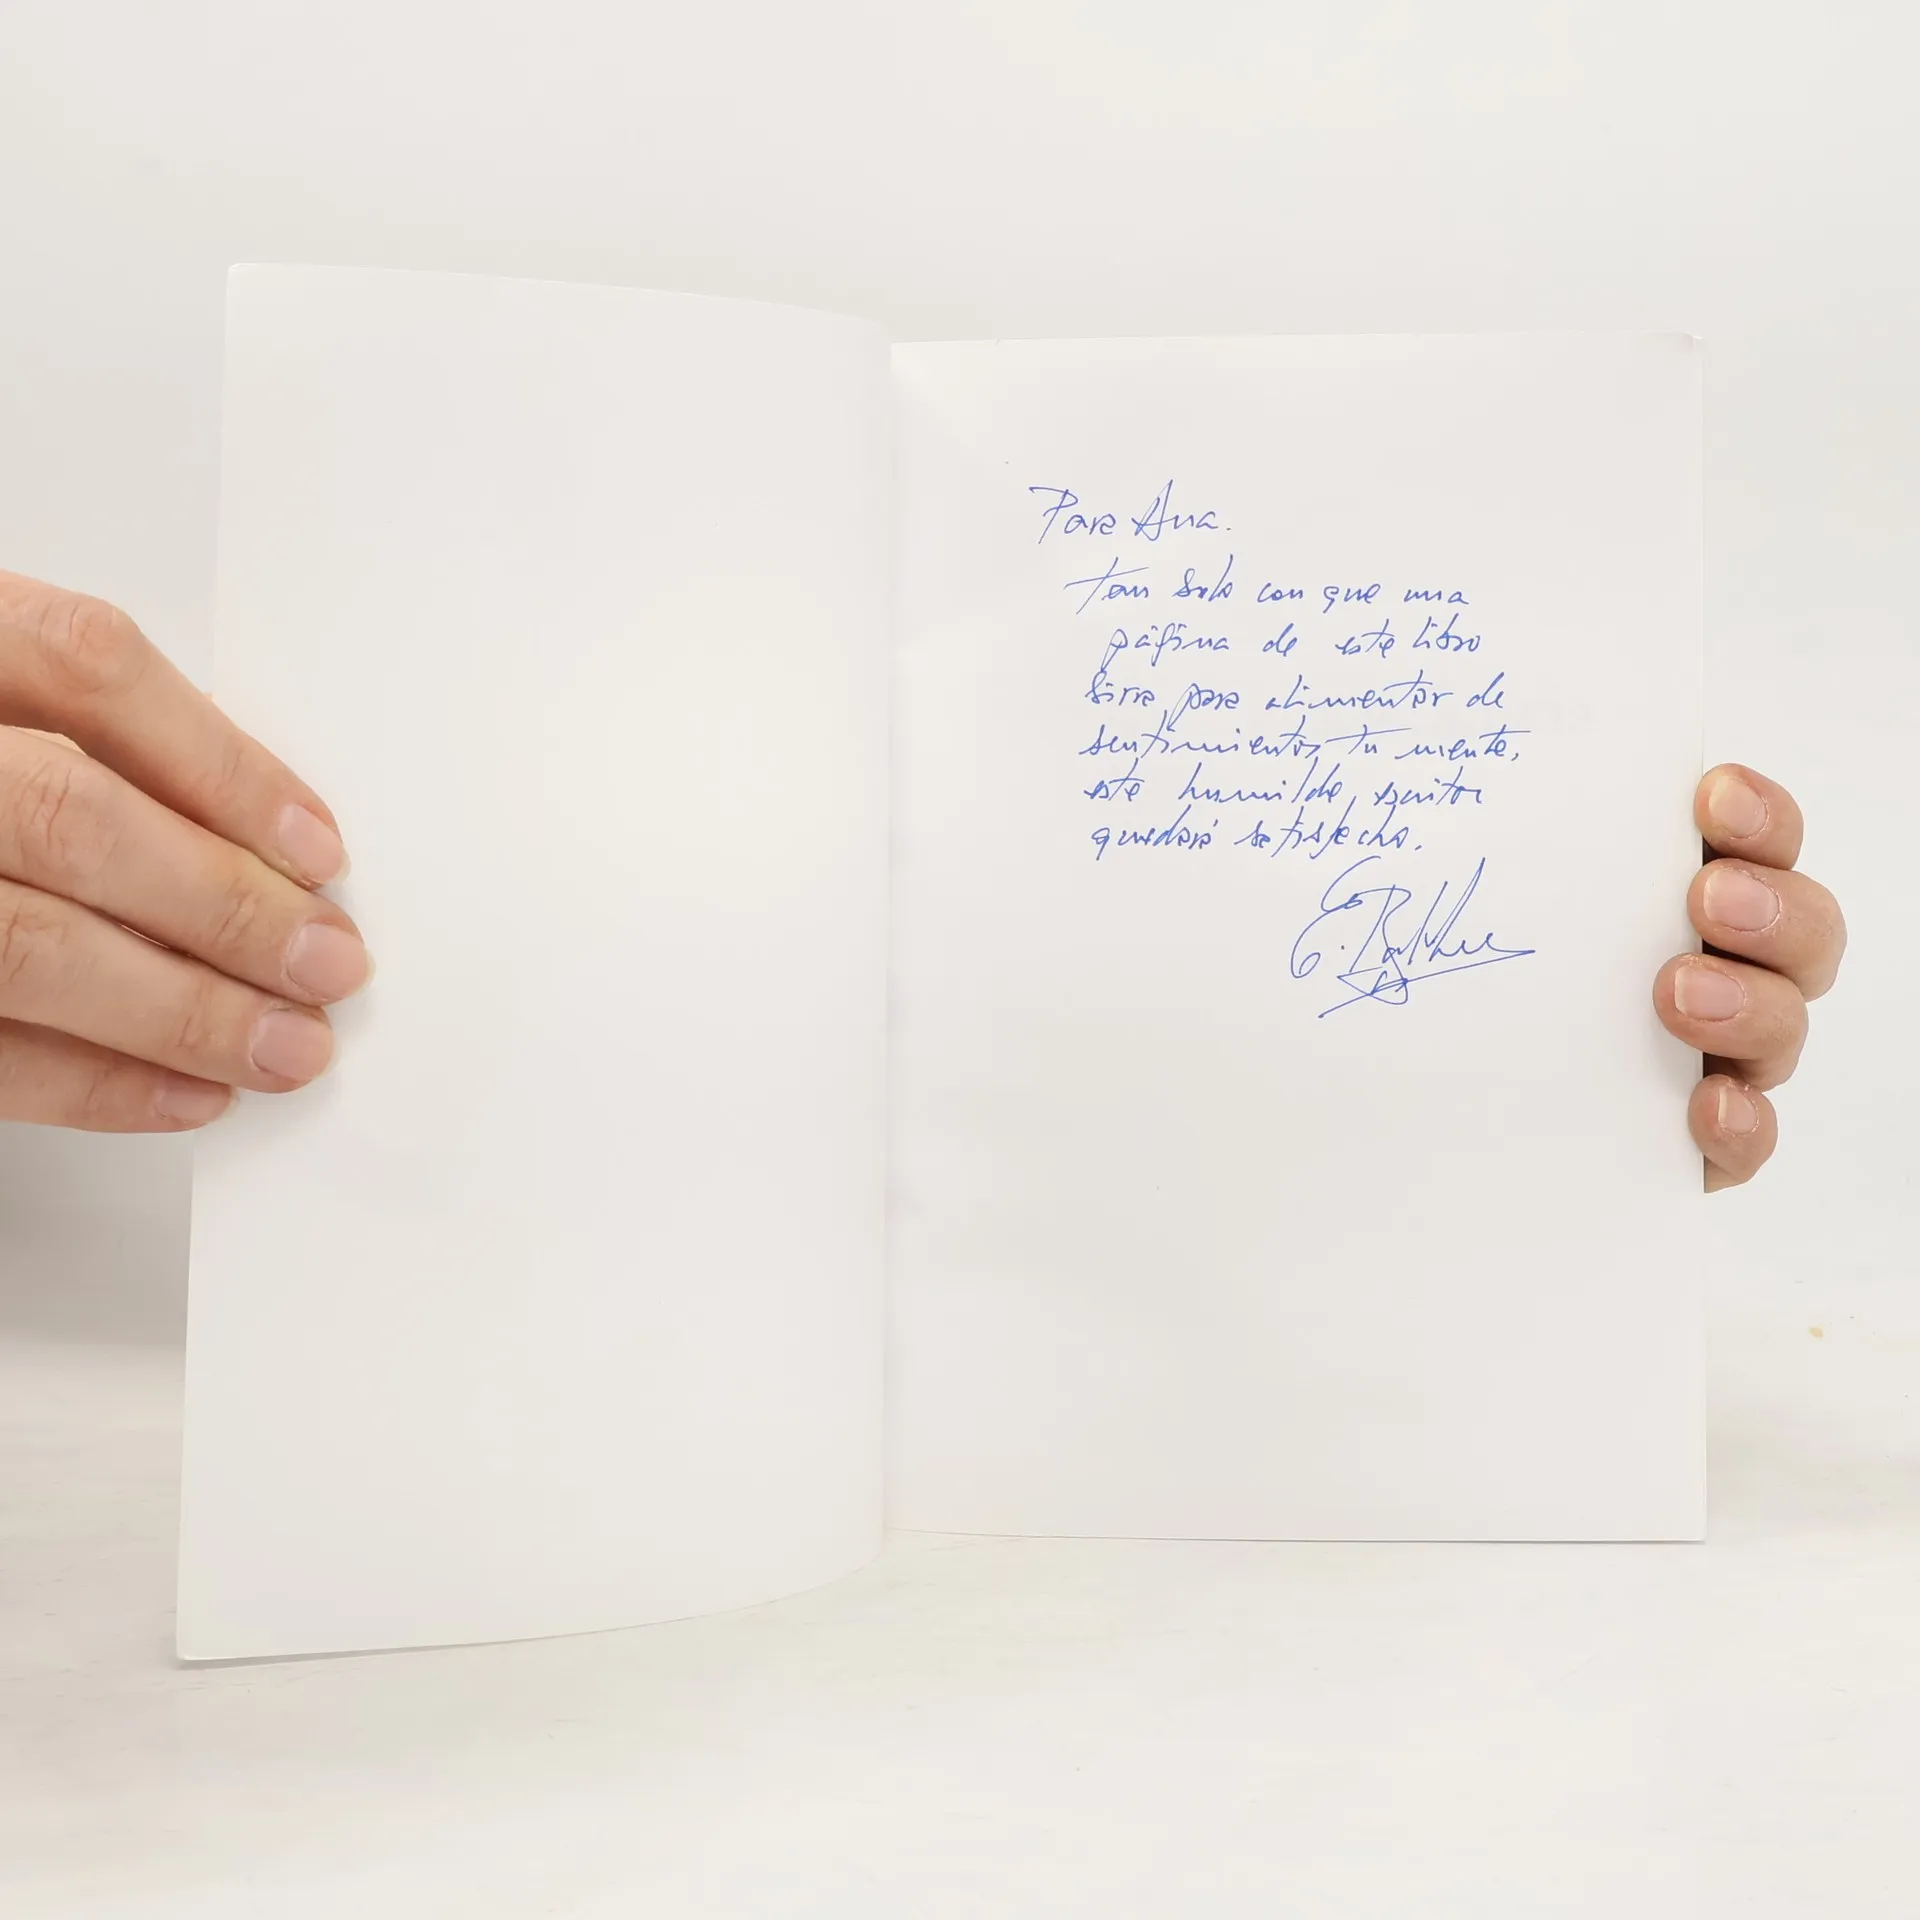 Para Ana.
tan solo con que una
página de este libro
sirva para alimentar de
sentimientos tu mente,
este humilde escritor
quedará satisfecho.